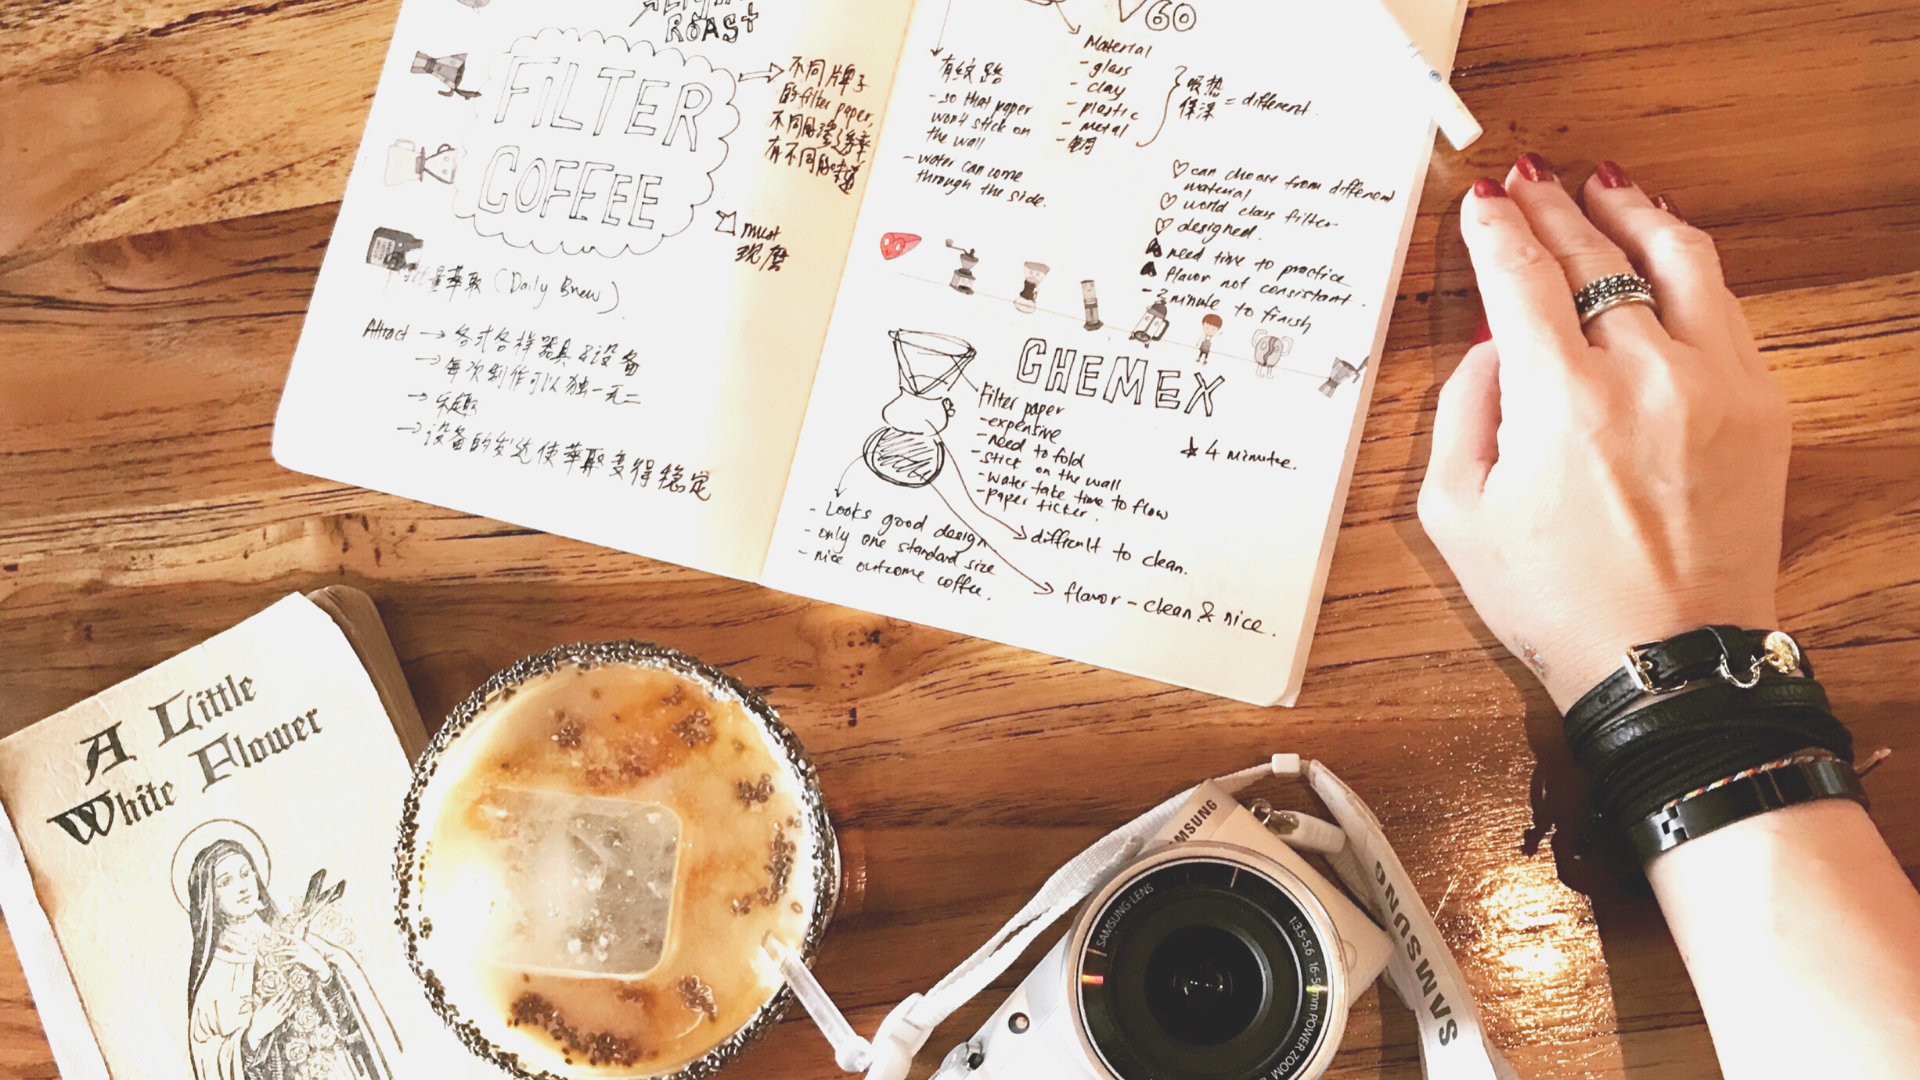 ROAST
FILTER
COFFEE
不同牌子
的filter paper,
不同的渗透率
有不同的味道
must
现磨
批量萃取 (Daily Brew)
Attract → 各式各样器具&设备
→ 每次制作可以独一无二
→ 乐趣
→ 设备的发达使萃取变得稳定
V60
有纹路
- so that paper
won't stick on
the wall
- water can come
through the side.
Material
- glass
- clay
- plastic
- metal
吸热
保温 = different.
♡ can choose from different
material
♡ world class filter
♡ designed.
need time to practice
flavor not consistant.
- 3 minute to finish
CHEMEX
Filter paper
- expensive
- need to fold
- stick on the wall
- water take time to flow
- paper ticker.
4 minute.
- Looks good design
- only one standard size
- nice outcome coffee.
difficult to clean.
flavor - clean & nice.
A Little
White Flower
SAMSUNG LENS
SAMSUNG